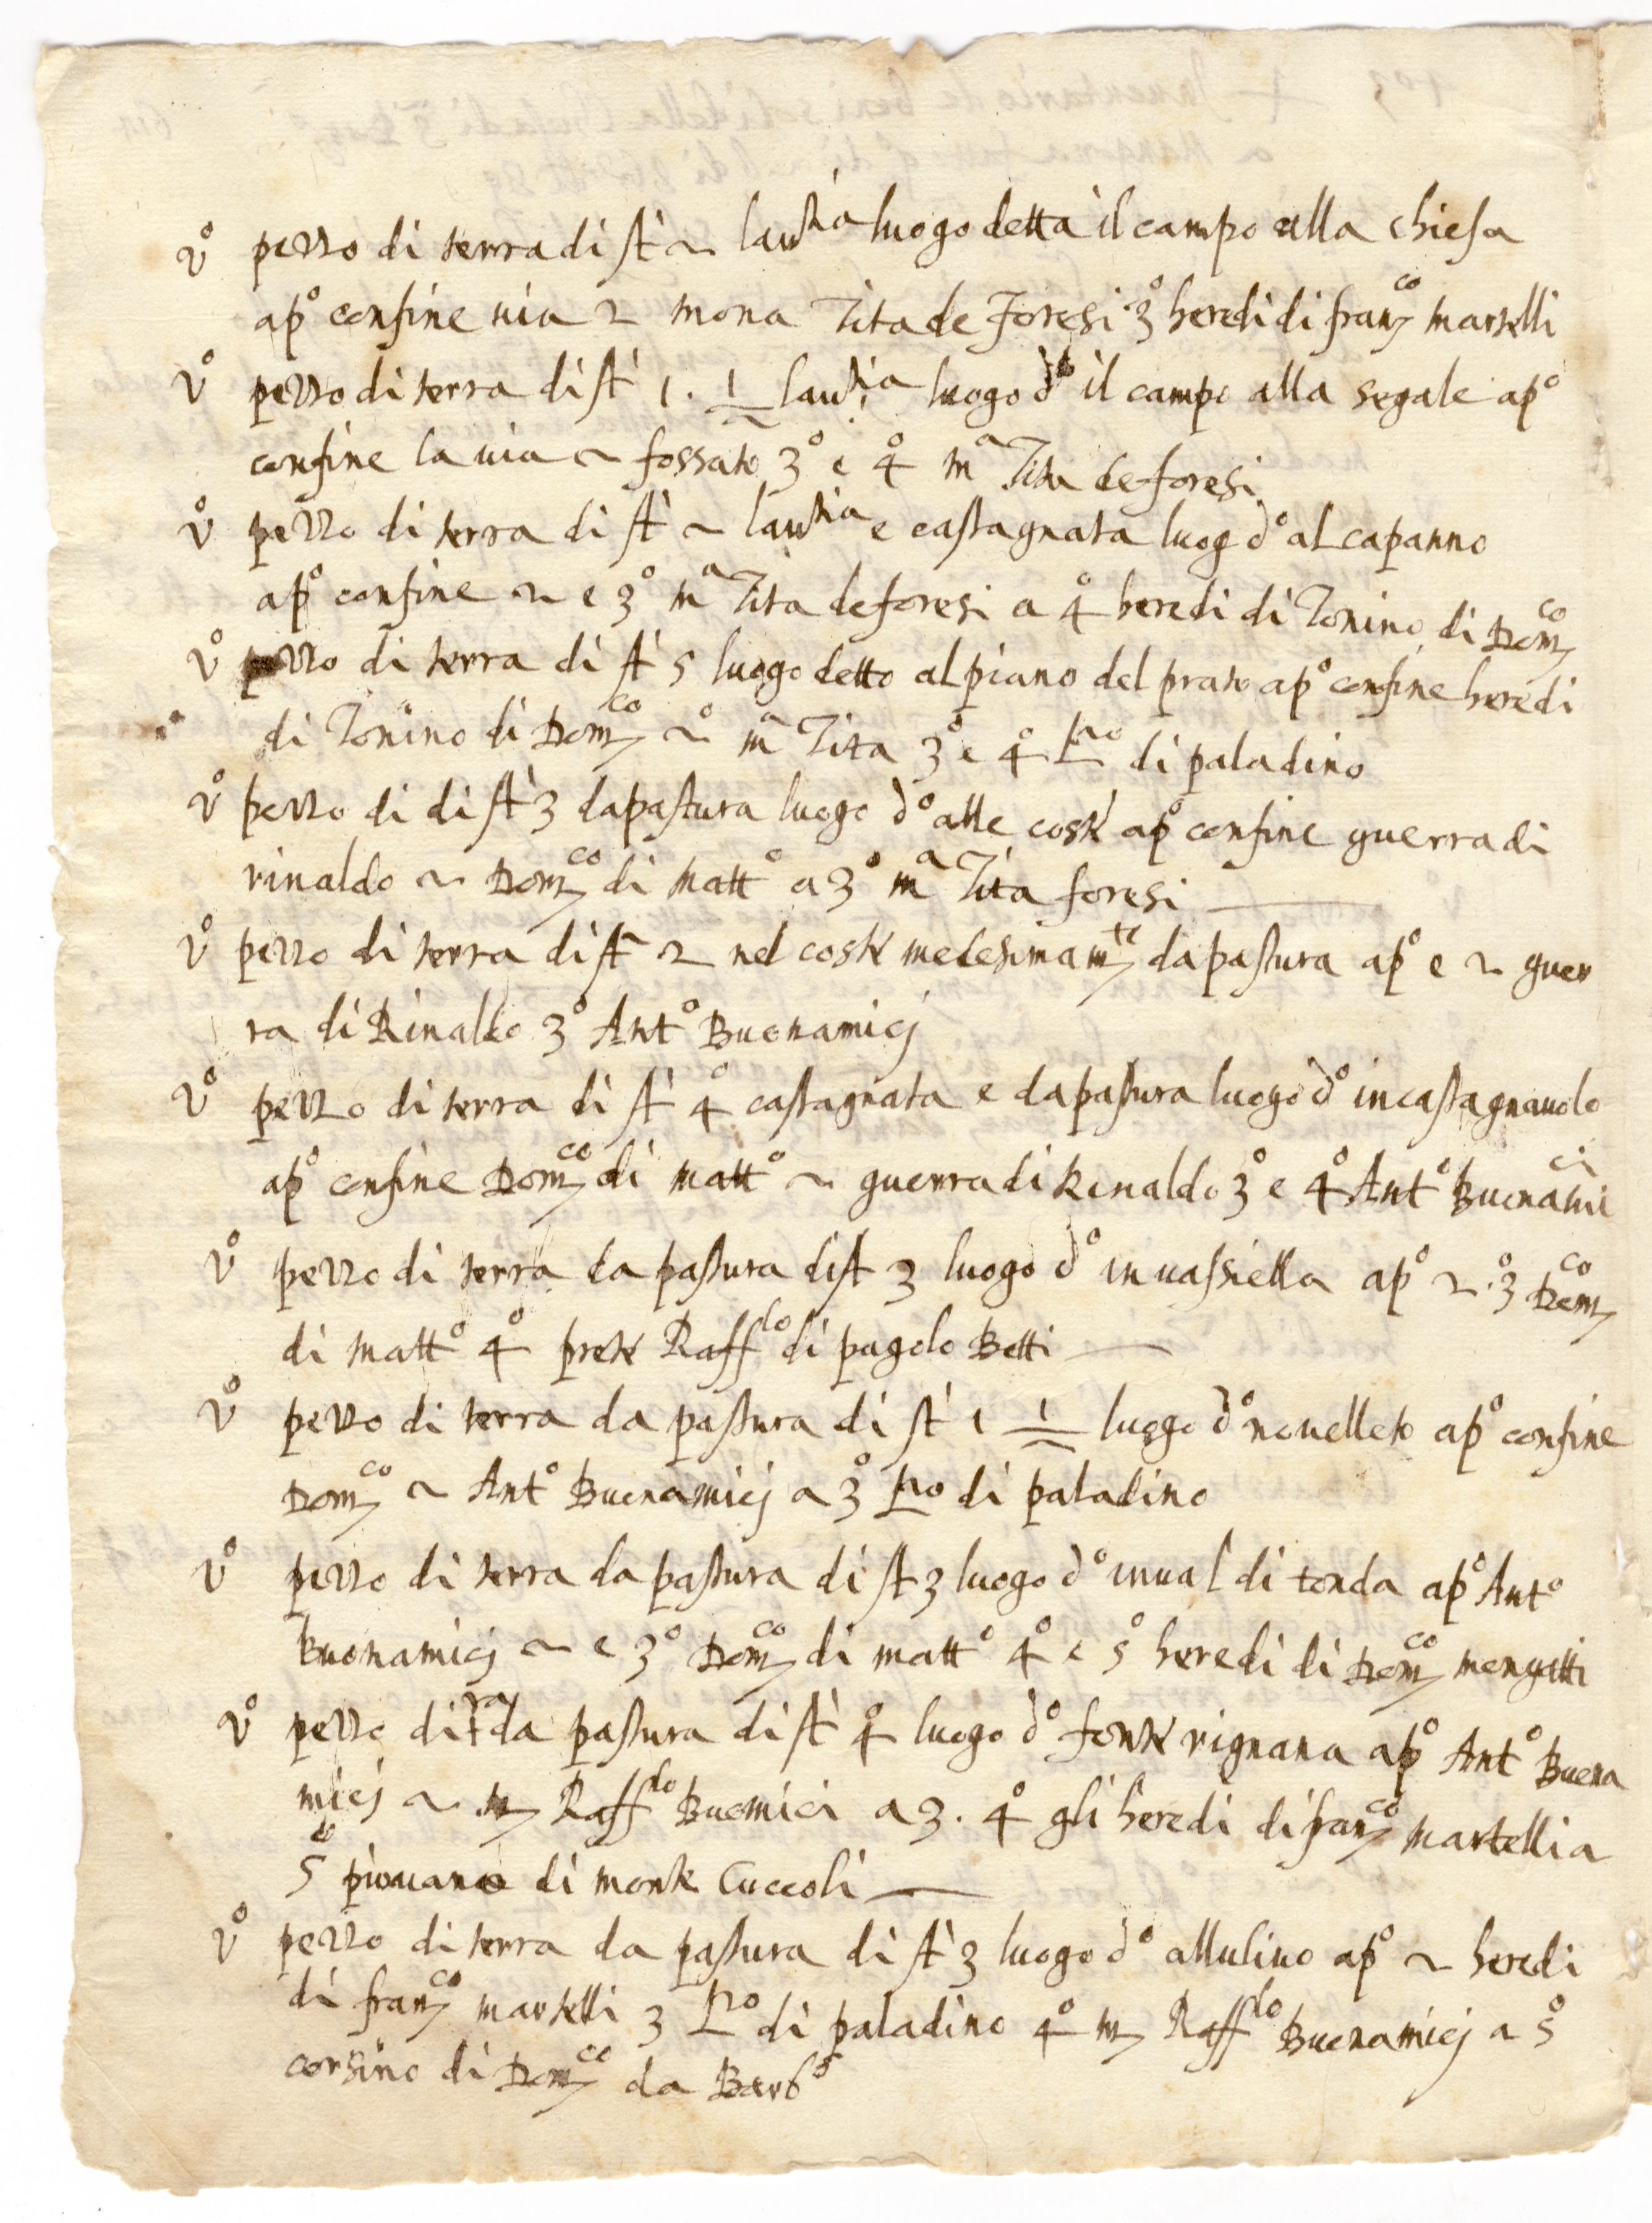 vº pezzo di terra di stª 2 lavtia luogo detta il campo alla chiesa
apº confine via 2 mona Tita de Foresi 3º heredi di franco martelli
vº pezzo di terra di stª 1. 1/2 lavtia luogo dº il campo alla segale apº
confine la via 2 fossato 3º e 4º mª Tita de foresi
vº pezzo di terra di stª 2 lavtia e castagnata luog dº al capanno
apº confine 2 e 3º mª Tita de foresi a 4º heredi di Tonino di Domco
vº pezzo di terra di stª 5 luogo detto al piano del prato apº confine heredi
di Tonino di Domco 2º mª Tita 3º e 4º Lzo di paladino
vº pezzo di di stª 3 da pastura luogo dº alle coste apº confine guerra di
rinaldo 2 Domco di mattº a 3º mª Tita foresi
vº pezzo di terra di stª 2 nel coste medesimamte da pastura apº e 2 guer
ra di Rinaldo 3º Antº Buonamicj
vº pezzo di terra di stª 4º castagnata e da pastura luogo dº in castagnuolo
apº confine Domco di mattº 2 guerra di Rinaldo 3º e 4º Antº Buonamici
vº pezzo di terra da pastura di stª 3 luogo dº in vassiella apº 2. 3º Domco
di mattº 4º prete Rafflo di pagolo Betti
vº pezzo di terra da pastura di stª 1 1/2 luogo dº novelleto apº confine
Domco 2 Antº Buonamicj a 3º Lzo di paladino
vº pezzo di terra da pastura di stª 3 luogo dº in val di tonda apº Antº
Buonamicj 2 e 3º Domco di mattº 4º e 5º heredi di Domco mengatti
vº pezzo di tra da pastura di stª 4º luogo dº fonte vignana apº Antº Buona
micj 2 m Rafflo Buomici a 3. 4º gli heredi di franco martelli a
5º piovano di monte Cuccoli
vº pezzo di terra da pastura di stª 3 luogo dº allulivo apº 2 heredi
di franco martelli 3 Lzo di paladino 4º m Rafflo Buonamicj a 5º
corsino di Domco da Barbª